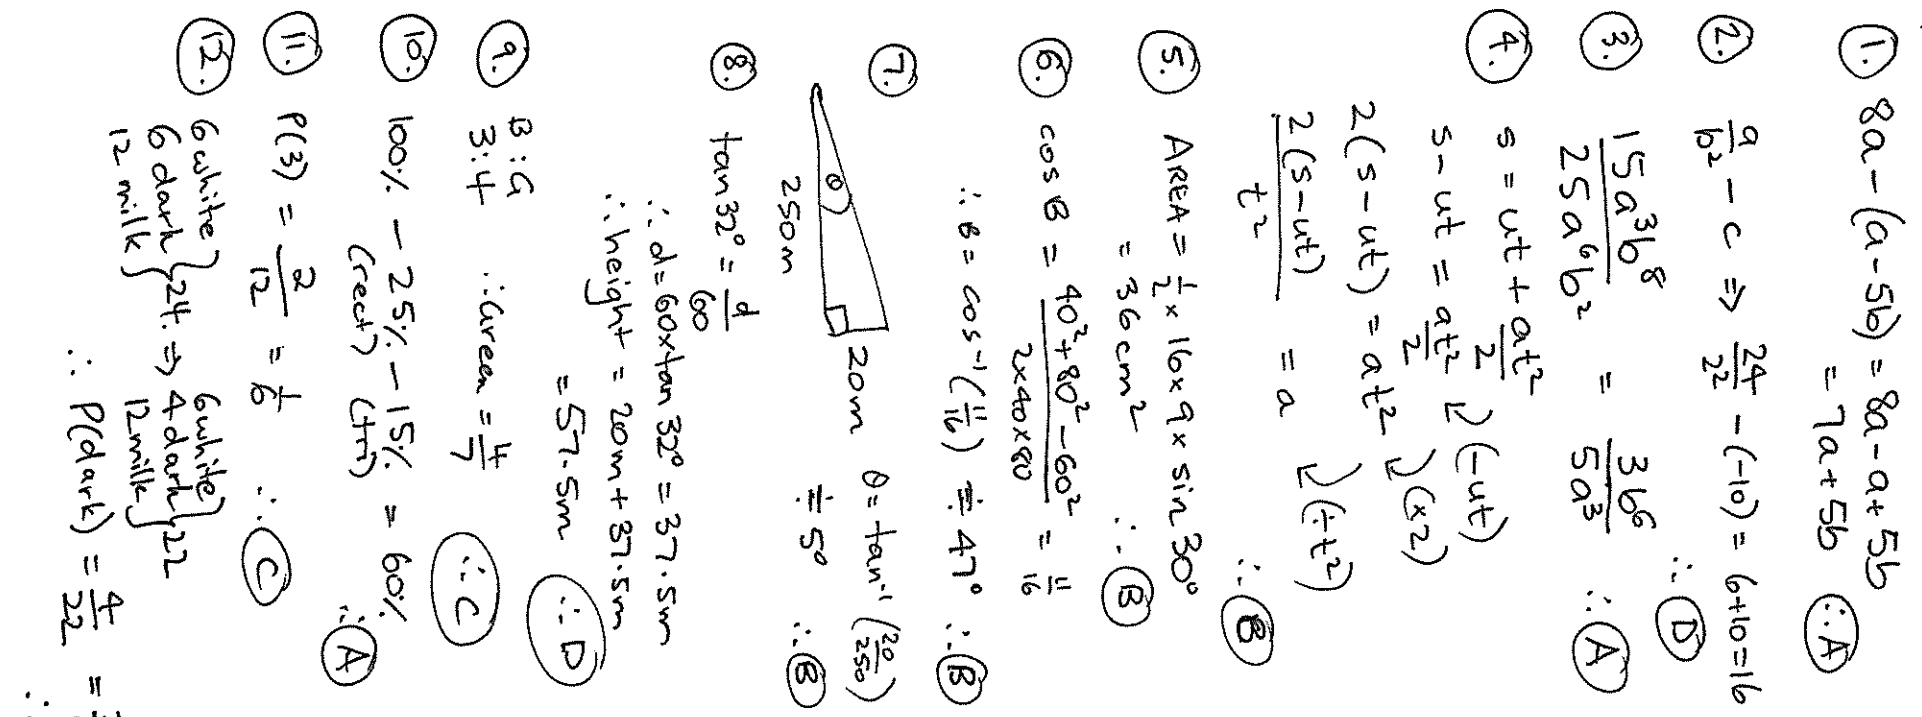 1. 8a - (a - 5b) = 8a - a + 5b
= 7a + 5b ∴ A
2. a/b² - c ⇒ 24/2² - (-10) = 6 + 10 = 16
∴ D
3. 15a³b⁸/25a⁶b² = 3b⁶/5a³ ∴ A
4. s = ut + at²/2
s - ut = at²/2 (-ut)
2(s - ut) = at² (×2)
2(s - ut)/t² = a (÷t²)
∴ B
5. AREA = ½ × 16 × 9 × sin 30°
= 36cm² ∴ B
6. cos B = 40² + 80² - 60²/2×40×80 = 11/16
∴ B = cos⁻¹(11/16) ≑ 47° ∴ B
7. θ 250m 20m θ = tan⁻¹(20/250)
≑ 5° ∴ B
8. tan 32° = d/60
∴ d = 60×tan 32° = 37.5m
∴ height = 20m + 37.5m
= 57.5m ∴ D
9. B : G
3 : 4 ∴ Green = 4/7 ∴ C
10. 100% - 25% - 15% = 60%
(rect) (tri) ∴ A
11. P(3) = 2/12 = 1/6 ∴ C
12. 6 white 6 white
6 dark } 24. ⇒ 4 dark } 22
12 milk 12 milk
∴ P(dark) = 4/22 =